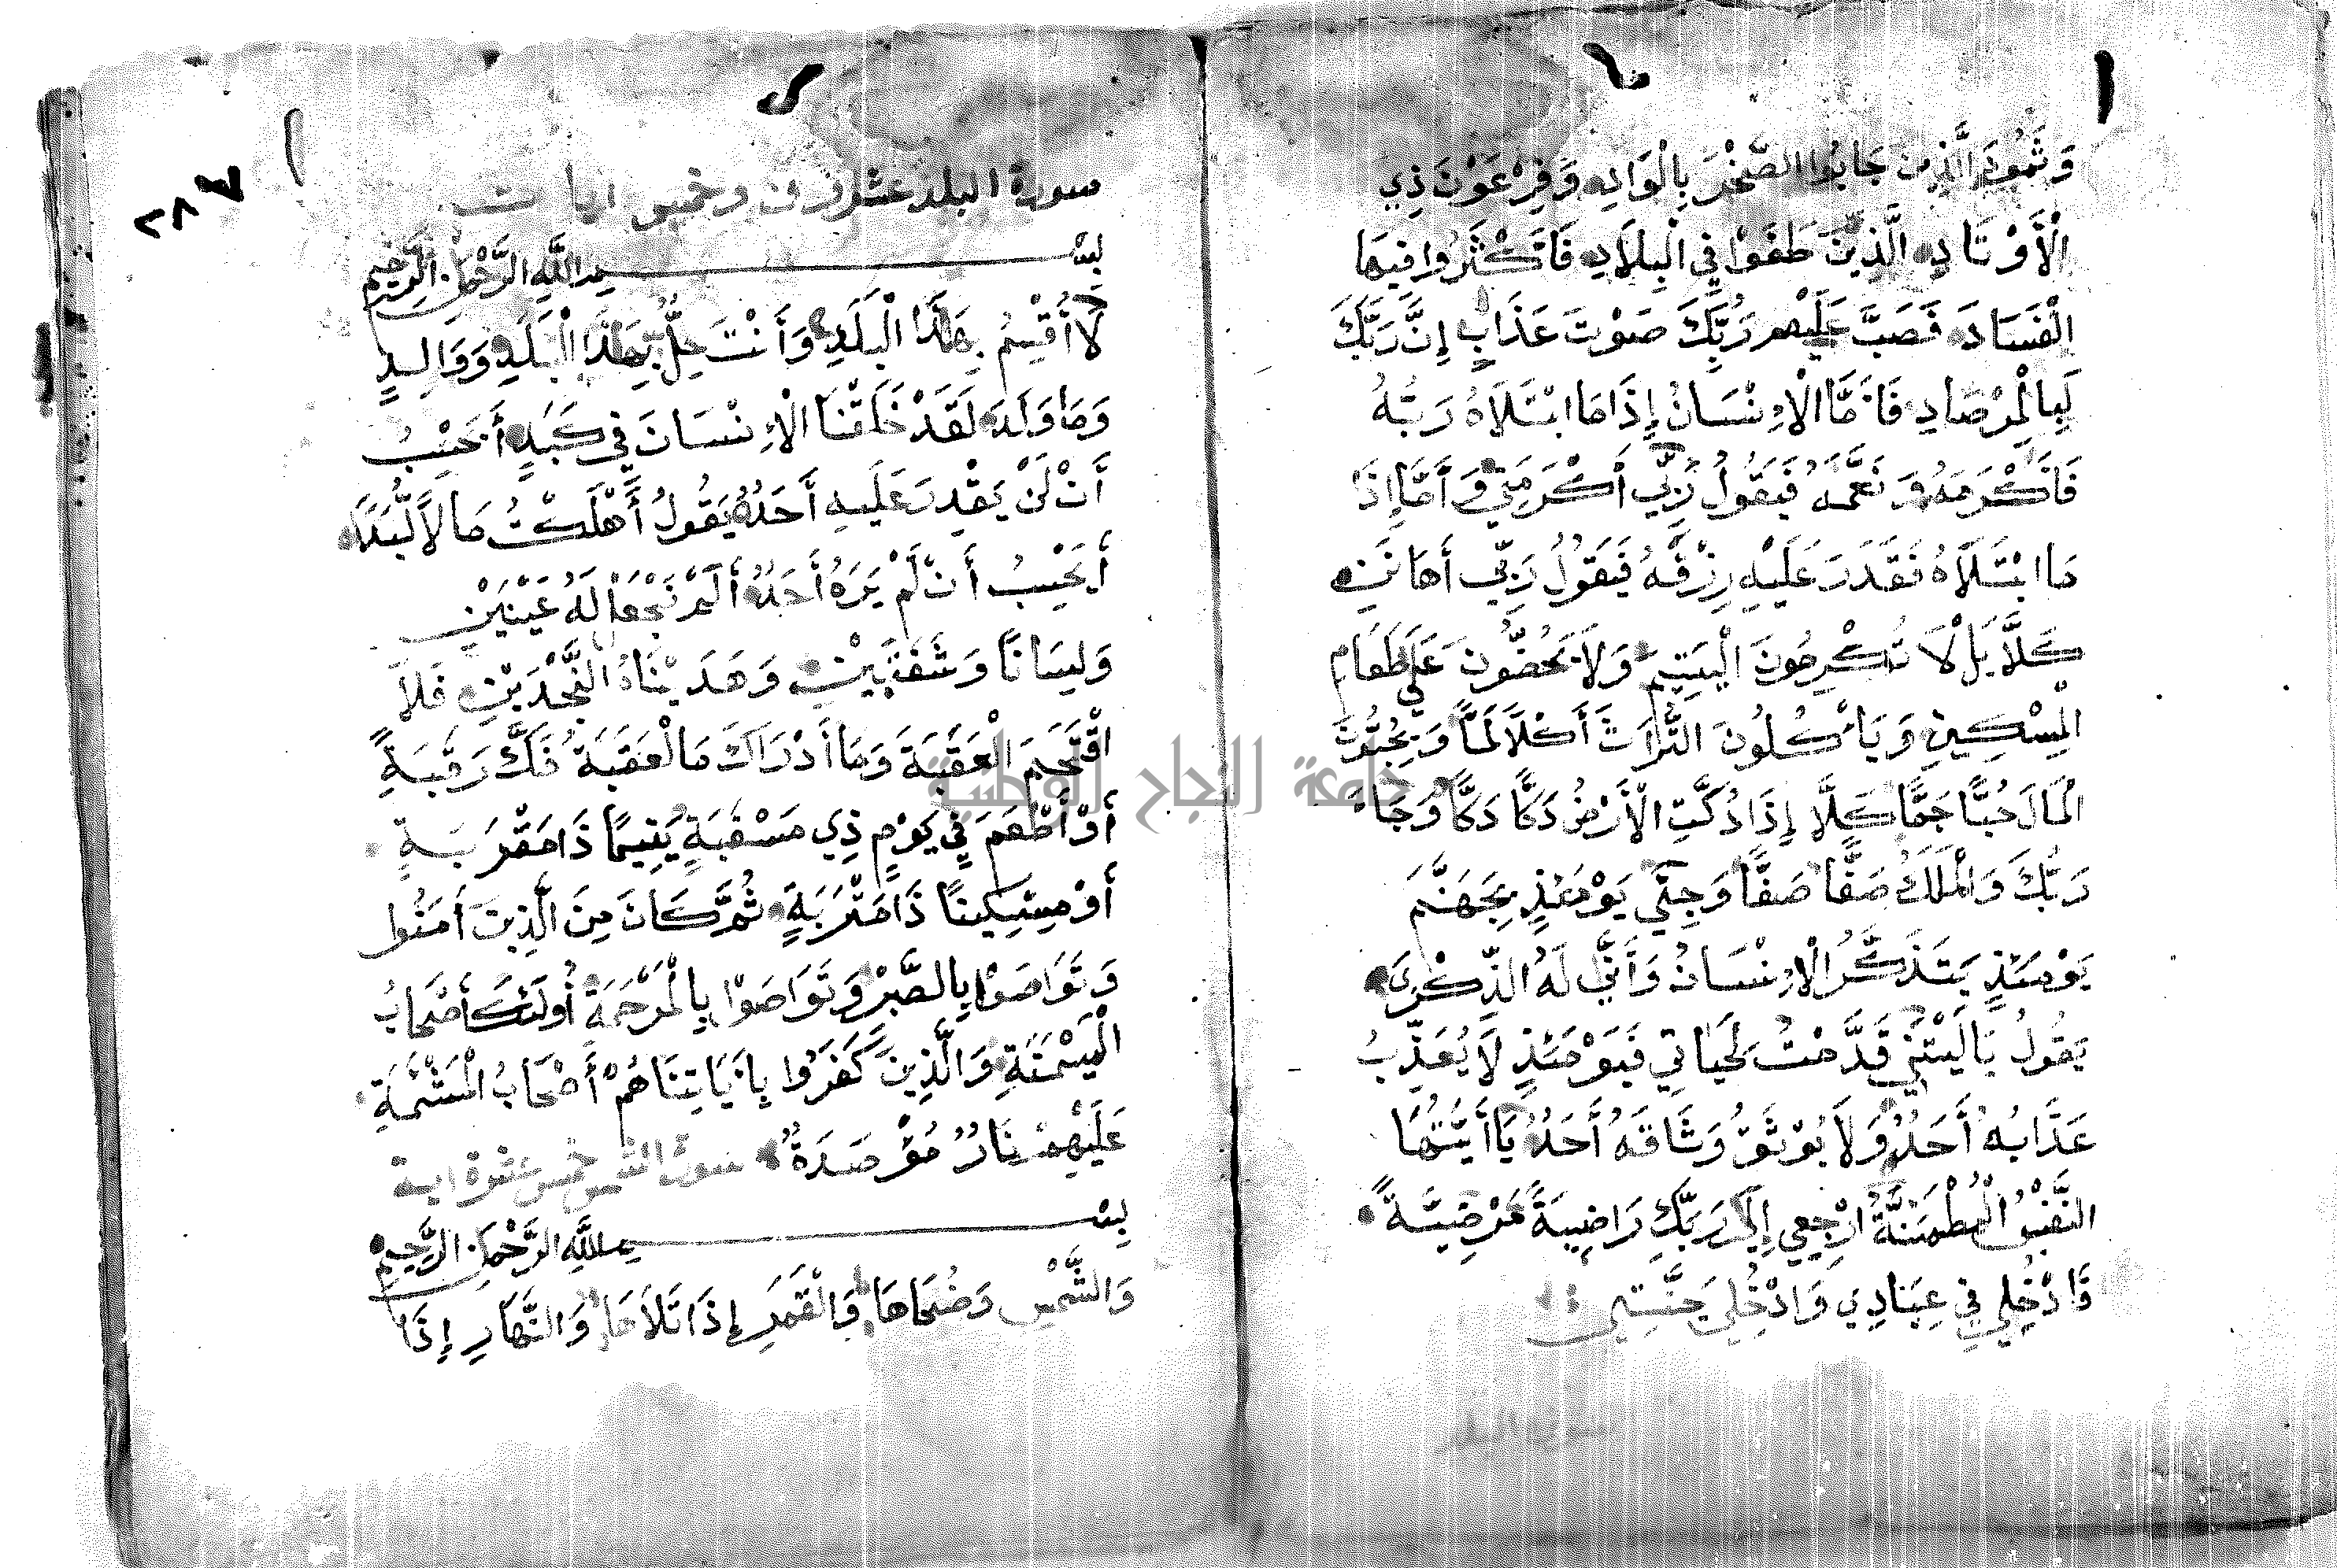 وَثَمُودَ الَّذِينَ جَابُوا الصَّخْرَ بِالْوَادِ وَفِرْعَوْنَ ذِي
الْأَوْتَادِ الَّذِينَ طَغَوْا فِي الْبِلَادِ فَأَكْثَرُوا فِيهَا
الْفَسَادَ فَصَبَّ عَلَيْهِم رَبُّكَ صَوْتَ عَذَابٍ إِنَّ رَبَّكَ
لَبِالْمِرْصَادِ فَأَمَّا الْإِنْسَانُ إِذَا مَا ابْتَلَاهُ رَبُّهُ
فَأَكْرَمَهُ وَنَعَّمَهُ فَيَقُولُ رَبِّي أَكْرَمَنِي وَأَمَّا إِذَا
مَا ابْتَلَاهُ فَقَدَرَ عَلَيْهِ رِزْقَهُ فَيَقُولُ رَبِّي أَهَانَنِ
كَلَّا بَلْ لَا تُكْرِمُونَ الْيَتِيمَ وَلَا تَحُضُّونَ عَلَى طَعَامِ
الْمِسْكِينِ وَيَأْكُلُونَ التُّرَاثَ أَكْلًا لَمًّا وَيُحِبُّونَ
الْمَالَ حُبًّا جَمًّا كَلَّا إِذَا دُكَّتِ الْأَرْضُ دَكًّا دَكًّا وَجَاءَ
رَبُّكَ وَالْمَلَكُ صَفًّا صَفًّا وَجِئَ يَوْمَئِذٍ بِجَهَنَّمَ
يَوْمَئِذٍ يَتَذَكَّرُ الْإِنْسَانُ وَأَنَّى لَهُ الذِّكْرَى
يَقُولُ يَا لَيْتَنِي قَدَّمْتُ لِحَيَاتِي فَيَوْمَئِذٍ لَا يُعَذِّبُ
عَذَابُهُ أَحَدٌ وَلَا يُوثَقُ وَثَاقَهُ أَحَدٌ يَا أَيَّتُهَا
النَّفْسُ الْمُطْمَئِنَّةُ ارْجِعِي إِلَى رَبِّكِ رَاضِيَةً مَرْضِيَّةً
فَادْخُلِي فِي عِبَادِي وَادْخُلِي جَنَّتِي
٢٨٧
سورة البلد عشرون وخمس ايات
بِسْمِ اللَّهِ الرَّحْمَنِ الرَّحِيمِ
لَا أُقْسِمُ بِهَذَا الْبَلَدِ وَأَنْتَ حِلٌّ بِهَذَا الْبَلَدِ وَوَالِدٍ
وَمَا وَلَدَ لَقَدْ خَلَقْنَا الْإِنْسَانَ فِي كَبَدٍ أَيَحْسِبُ
أَنْ لَنْ يَقْدِرَ عَلَيهِ أَحَدٌ يَقُولُ أَهْلَكْتُ مَالًا لُّبَدًا
أَيَحْسِبُ أَنْ لَمْ يَرَهُ أَحَدٌ أَلَمْ نَجْعَلْ لَهُ عَيْنَيْنِ
وَلِسَانًا وَشَفَتَيْنِ وَهَدَيْنَاهُ النَّجْدَيْنِ فَلَا
اقْتَحَمَ الْعَقَبَةَ وَمَا أَدْرَاكَ مَا الْعَقَبَةُ فَكَّ رَقَبَةً
أَوْ أَطْعَمَ فِي يَوْمٍ ذِي مَسْغَبَةٍ يَتِيمًا ذَا مَقْرَبَةٍ
أَوْ مِسْكِينًا ذَا مَتْرَبَةٍ ثُمَّ كَانَ مِنَ الَّذِينَ أَمَنُوا
وَتَوَاصَوْا بِالصَّبْرِ وَتَوَاصَوْا بِالْمَرْحَمَةِ أُولَئِكَ أَصْحَابُ
الْمَيْمَنَةِ وَالَّذِينَ كَفَرُوا بِأَيَاتِنَا هُمْ أَصْحَابُ الْمَشْئَمَةِ
عَلَيْهِمْ نَارٌ مُؤْصَدَةٌ سورة الشمس خمس عشرة اية
بِسْمِ اللَّهِ الرَّحْمَنِ الرَّحِيمِ
وَالشَّمْسِ وَضُحَاهَا وَالْقَمَرِ إِذَا تَلَاهَا وَالنَّهَارِ إِذَا
جامعة النجاح الوطنية